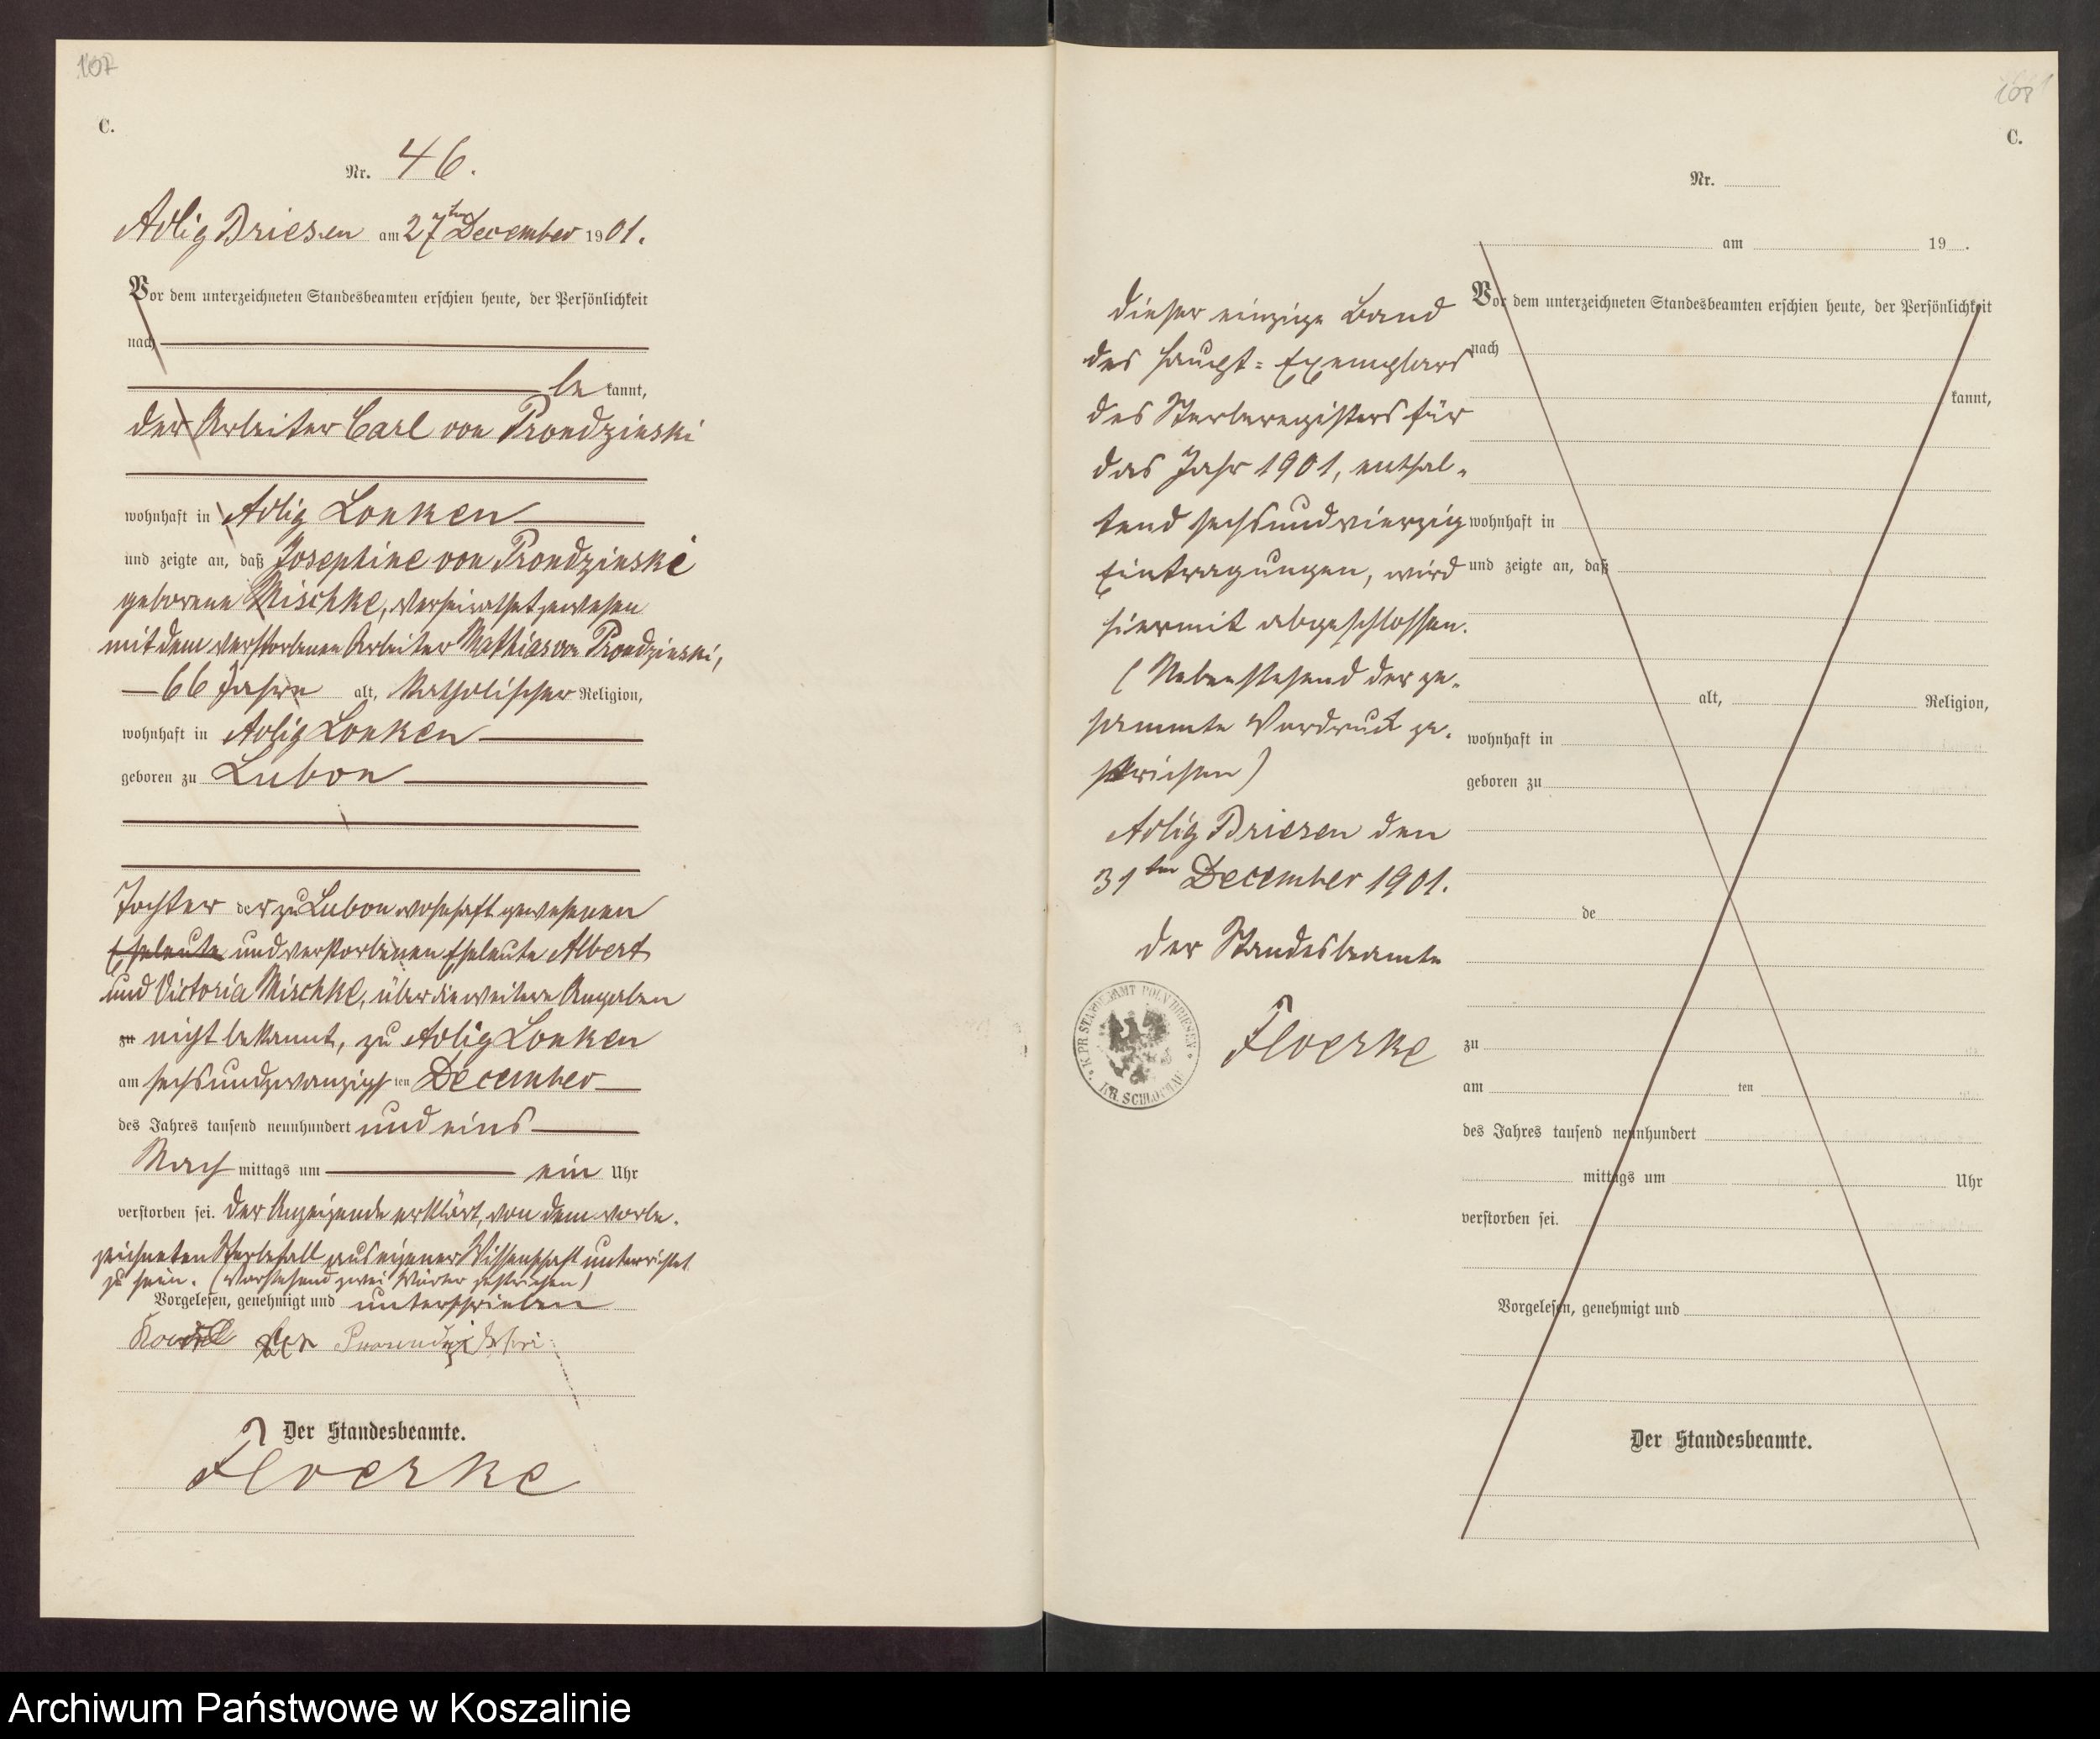 107
C.
Nr. 46.
Adlig Briesen am 27ten December 1901.
Vor dem unterzeichneten Standesbeamten erschien heute, der Persönlichkeit
nach
be kannt,
der Arbeiter Carl von Prondzinski
wohnhaft in Adlig Lonken
und zeigte an, daß Josephine von Prondzinski
geborene Mischke, verheirathet gewesen
mit dem verstorbenen Arbeiter Mathias von Prondzinski,
66 Jahre alt, katholischer Religion,
wohnhaft in Adlig Lonken
geboren zu Lubon
Tochter der zu Lubon wohnhaft gewesenen
Eheleute und verstorbenen Eheleute Albert
und Victoria Mischke, über die weitere Angaben
zu nicht bekannt, zu Adlig Lonken
am sechsundzwanzigsten December
des Jahres tausend neunhundert und eins
Nach mittags um ein Uhr
verstorben sei. Der Anzeigende erklärt, von dem vorbe-
zeichneten Sterbefall aus eigener Wissenschaft unterrichtet
zu sein. (Vorstehend zwei Wörter gestrichen)
Vorgelesen, genehmigt und unterschrieben
Der Standesbeamte.
Floerke
168
C.
Nr.
am 19 .
Dieser einzige Band
des Haupt-Exemplars
des Sterberegisters für
das Jahr 1901, enthal-
tend sechsundvierzig
Eintragungen, wird
hiermit abgeschlossen.
(Nebenstehend der ge-
sammte Vordruck ge-
strichen)
Adlig Briesen den
31ten December 1901.
Der Standesbeamte
Floerke
K. PR. STANDESAMT POLN. BRIESEN
KR. SCHLOCHAU
Vor dem unterzeichneten Standesbeamten erschien heute, der Persönlichkeit
nach
kannt,
wohnhaft in
und zeigte an, daß
alt, Religion,
wohnhaft in
geboren zu
de
zu
am ten
des Jahres tausend neunhundert
mittags um Uhr
verstorben sei.
Vorgelesen, genehmigt und
Der Standesbeamte.
Archiwum Państwowe w Koszalinie